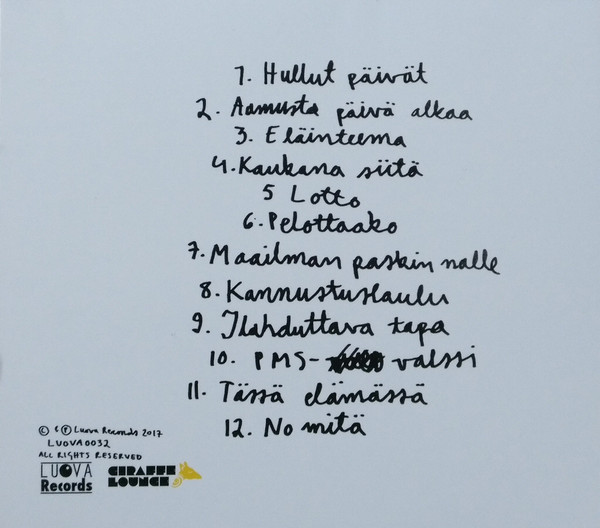 1. Hullut päivät
2. Aamusta päivä alkaa
3. Eläinteema
4. Kaukana siitä
5 Lotto
6. Pelottaako
7. Maailman paskin nalle
8. Kannustuslaulu
9. Ilahduttava tapa
10. PMS- valssi
11. Tässä elämässä
12. No mitä
© & ℗ Luova Records 2017
LUOVA0032
ALL RIGHTS RESERVED
LUOVA
Records
GIRAFFE
LOUNGE